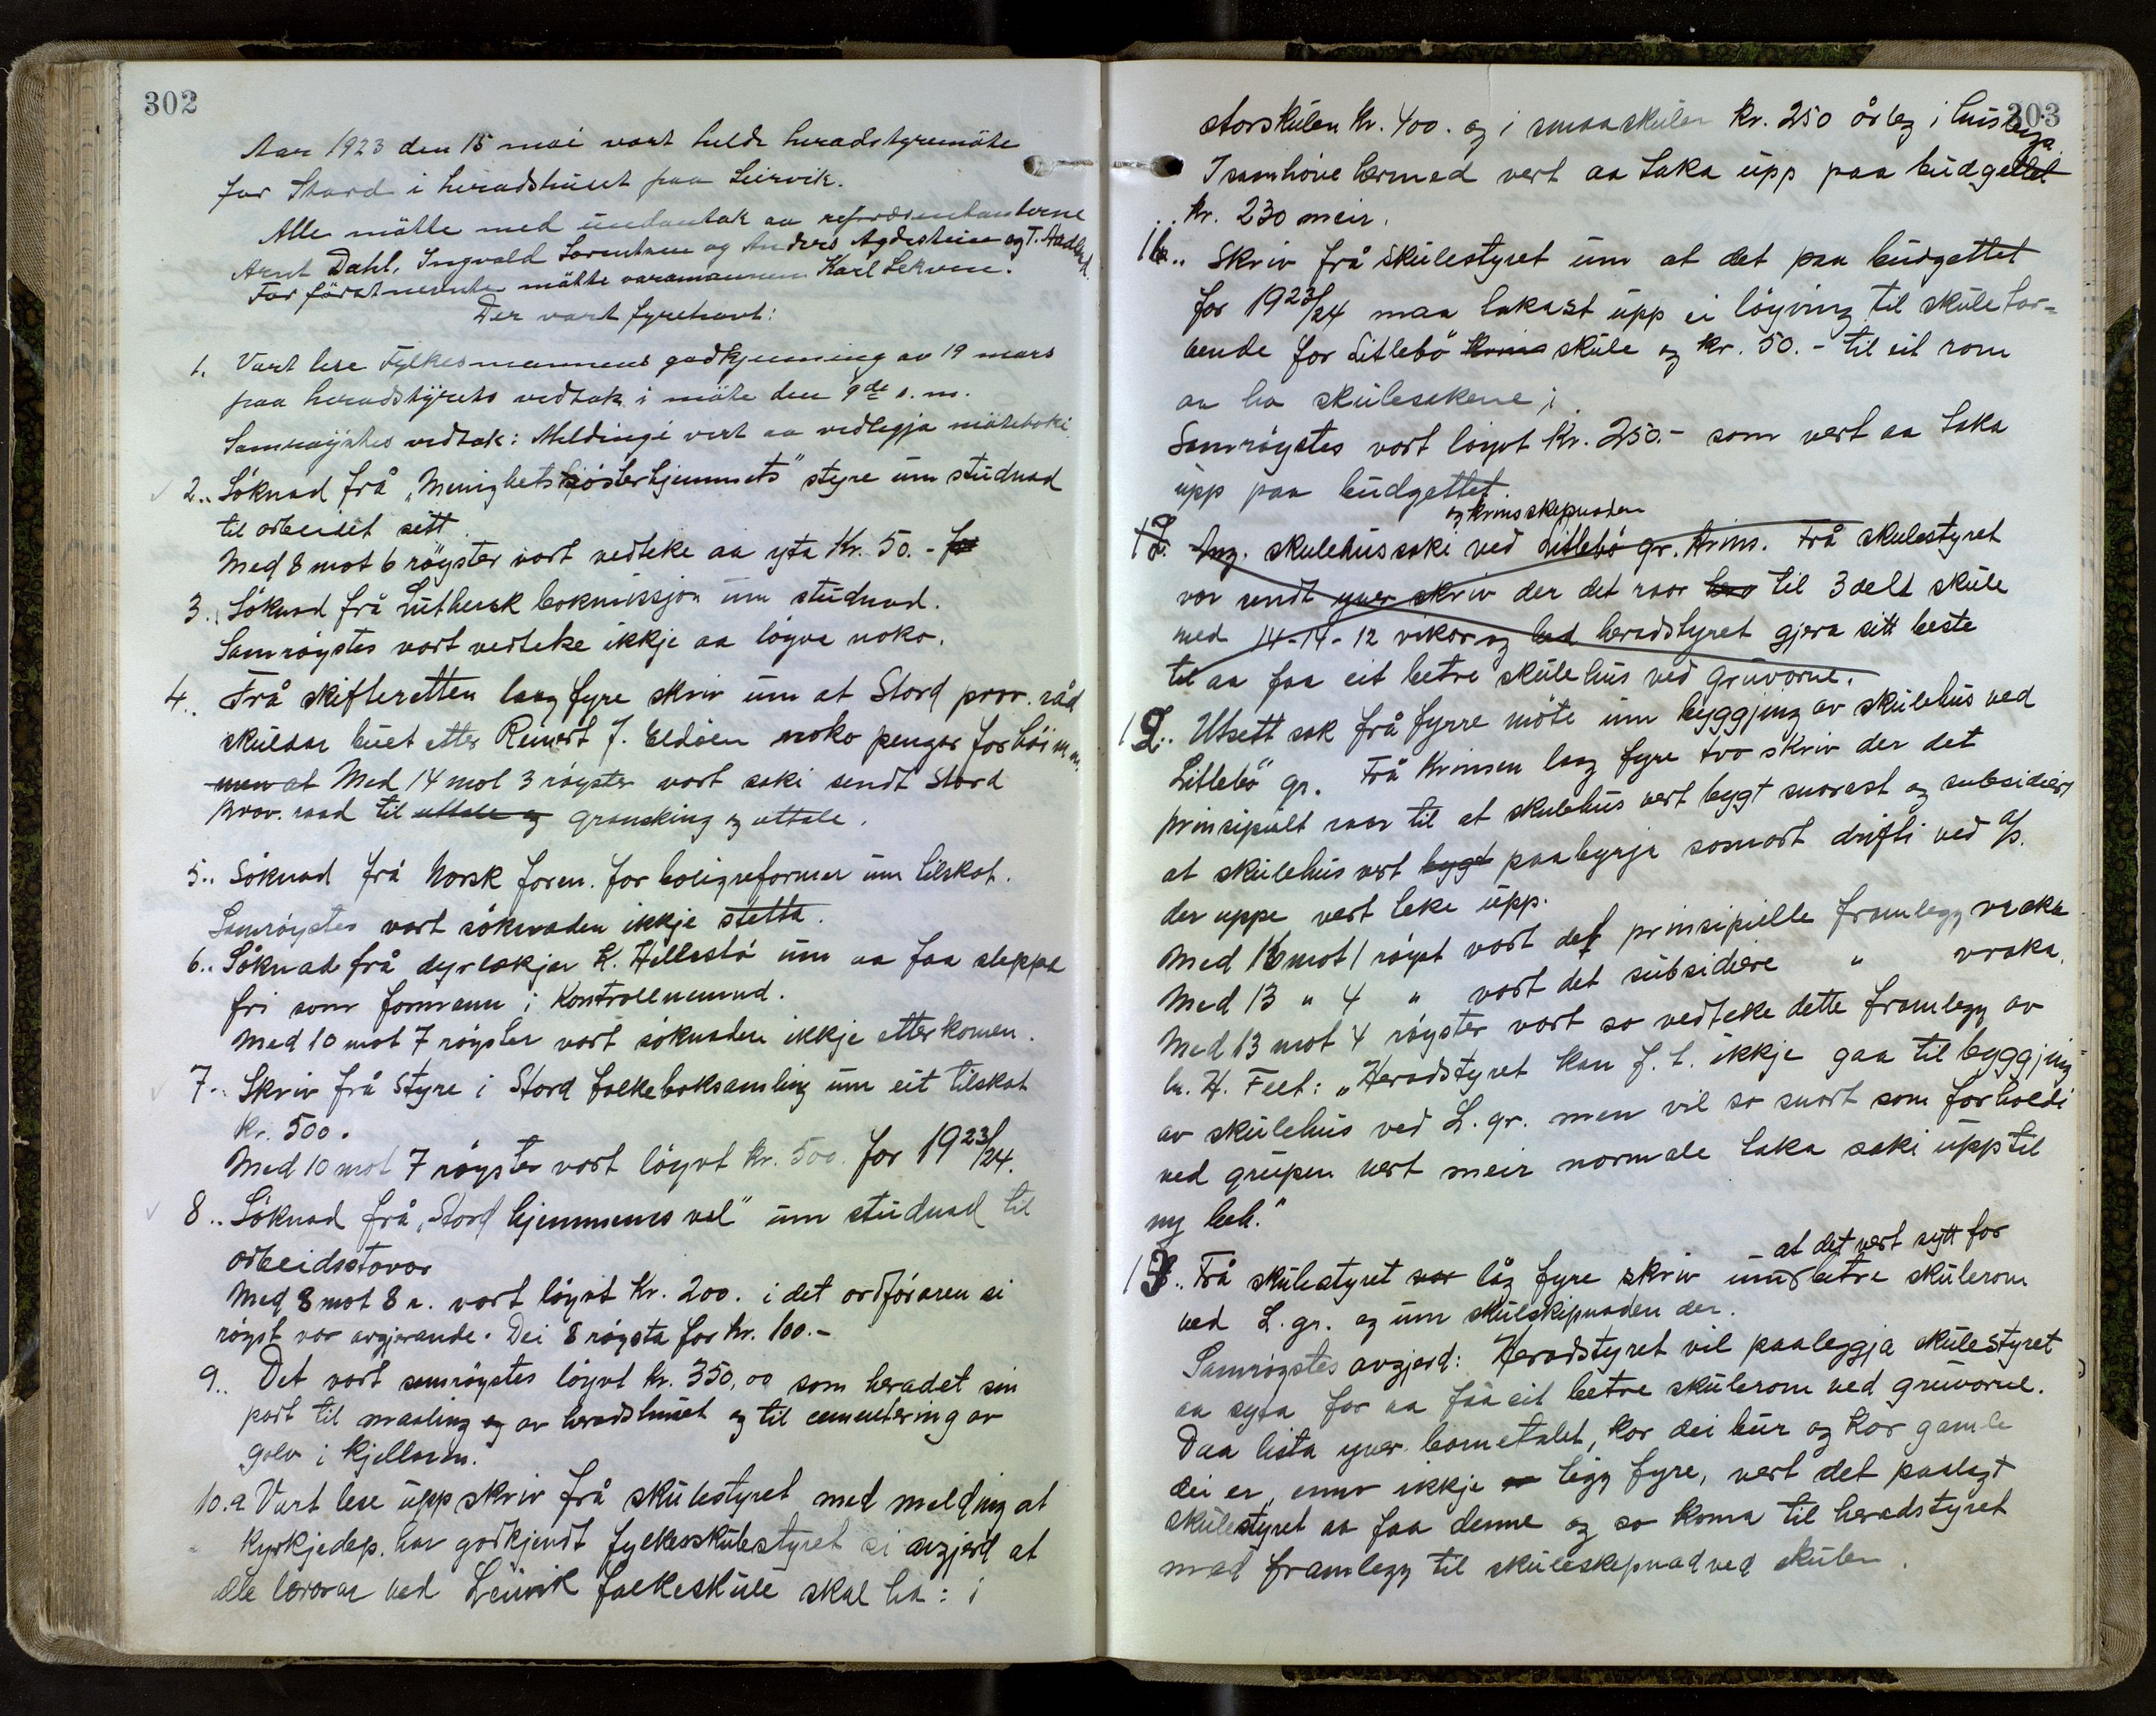 302
Aar 1923 den 15 mai vart helde heradstyremöte
for Stord i heradshuset paa Leirvik.
Alle mötte med undantak av representanterne
Arnt Dahl, Ingvald Sorentsen og Anders Agdestein og T. Aadland.
For förstnemnte mötte varamannen Karl Lekven.
Der vart fyrehavt:
1. Vart lese Fylkesmannens godkjenning av 19 mars
paa heradstyrets vedtak i möte den 9de s. m.
Samröystes vedtak: Meldingi vert aa vedlegja möteboki.
2.. Söknad frå "Menighetssösterhjemmets" styre um studnad
til arbeidet sitt.
Med 8 mot 6 röyster vart vedteke aa yta Kr. 50.- for
3.. Söknad frå Luthersk bokmissjon um studnad.
Samröystes vart vedteke ikkje aa löyva noko.
4.. Frå skifteretten laag fyre skriv um at Stord prov. råd
skuldar buet etter Reinert J. Eldöen noko pengar for
men at Med 14 mot 3 röyster vart saki sendt Stord
prov. raad til uttale og gransking og uttale.
5.. Söknad frå Norsk foren. for boligreformer um tilskot.
Samröystes vart söknaden ikkje stetta.
6.. Söknad frå dyrlækjar K. Hillestö um aa faa sleppa
fri som formann i Kontrollnemnd.
Med 10 mot 7 röyster vart söknaden ikkje etterkomen.
7.. Skriv frå styre i Stord folkeboksamling um eit tilskot
kr. 500.
Med 10 mot 7 röyster vart löyvt kr. 500. for 1923/24.
8.. Söknad frå "Stord hjemmenes vel" um studnad til
arbeidsstovor
Med 8 mot 8 r. vart löyvt Kr. 200. i det ordföraren si
röyst var avgjerande. Dei 8 röysta for kr. 100.-
9.. Det vart samröystes löyvt kr. 350,00 som heradet sin
part til maaling og av heradshuset og til cementering av
golv i kjellaren.
10.a Vart lese upp skriv frå skulestyret med melding at
Kyrkjedep. har godkjendt fylkesskulestyret si avgjerd at
alle lærarar ved Leirvik folkeskule skal ha: i
303
storskulen kr. 400. og i smaaskulen kr. 250 årleg i husleiga.
I samhöve hermed vert aa taka upp paa budgettet
kr. 230 meir.
11.. Skriv frå skulestyret um at det paa budgettet
for 1923/24 maa takast upp ei löyving til skuletor-
bende for Litlebö krins skule og kr. 50.- til eit rom
aa ha skulesakene i
Samröystes vart löyvt kr. 250.- som vert aa taka
upp paa budgettet.
og krinsskipnaden
12. Ang. skulehussaki ved Litlebö gr. krins. Frå skulestyret
var sendt yver skriv der det raar til 3 delt skule
med 14-14-12 vikor og bed heradstyret gjera sitt beste
til aa faa eit betre skulehus ved gruvorne.
12.. Utsett sak frå fyrre möte um byggjing av skulehus ved
Litlebö gr. Frå krinsen laag fyre tvo skriv der det
prinsipalt raar til at skulehus vert bygt snorast og subsidiert
at skulehus vert bygt paabyrja somsart drifti ved a/s.
der uppe vert teke upp.
Med 16 mot 1 röyst vart det prinsipielle framlegg vraka
Med 13 " 4 " vart det subsidiere " vraka.
Med 13 mot 4 röyster vart so vedteke dette framlegg av
hr. H. Felt: "Heradstyret kan f. t. ikkje gaa til byggjing
av skulehus ved L. gr. men vil so snart som forholdi
ved grupen vert meir normale taka saki upp til
ny beh."
at det vert sytt for
13.. Frå skulestyret låg fyre skriv um betre skulerom
ved L. gr. og um skulskipnaden der.
Samröystes avgjerd: Heradstyret vil paaleggja skulestyret
aa syta for aa faa eit betre skulerom ved gruvorne.
Daa lista yver bornetalet, kor dei bur og kor gamle
dei er, enno ikkje ligg fyre, vert det paalagt
skulestyret aa faa denne og so koma til heradstyret
med framlegg til skuleskepnad ved skulen.